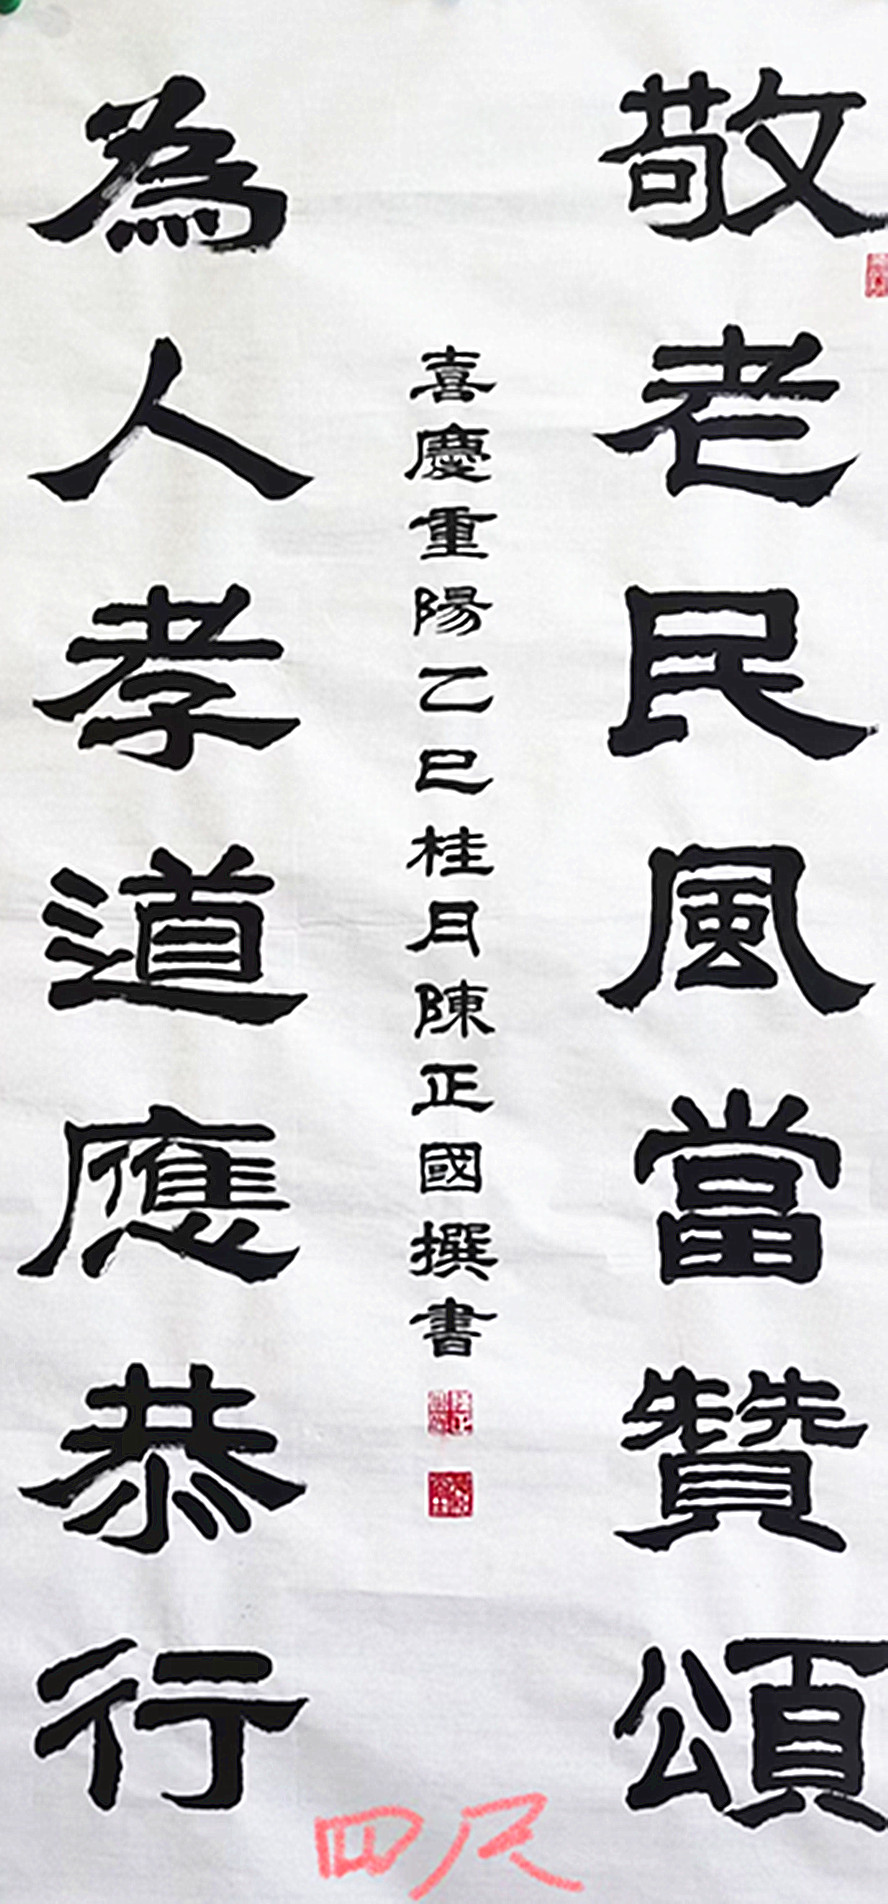 敬老民風當贊頌
為人孝道應恭行
喜慶重陽乙巳桂月陳正國撰書
四尺